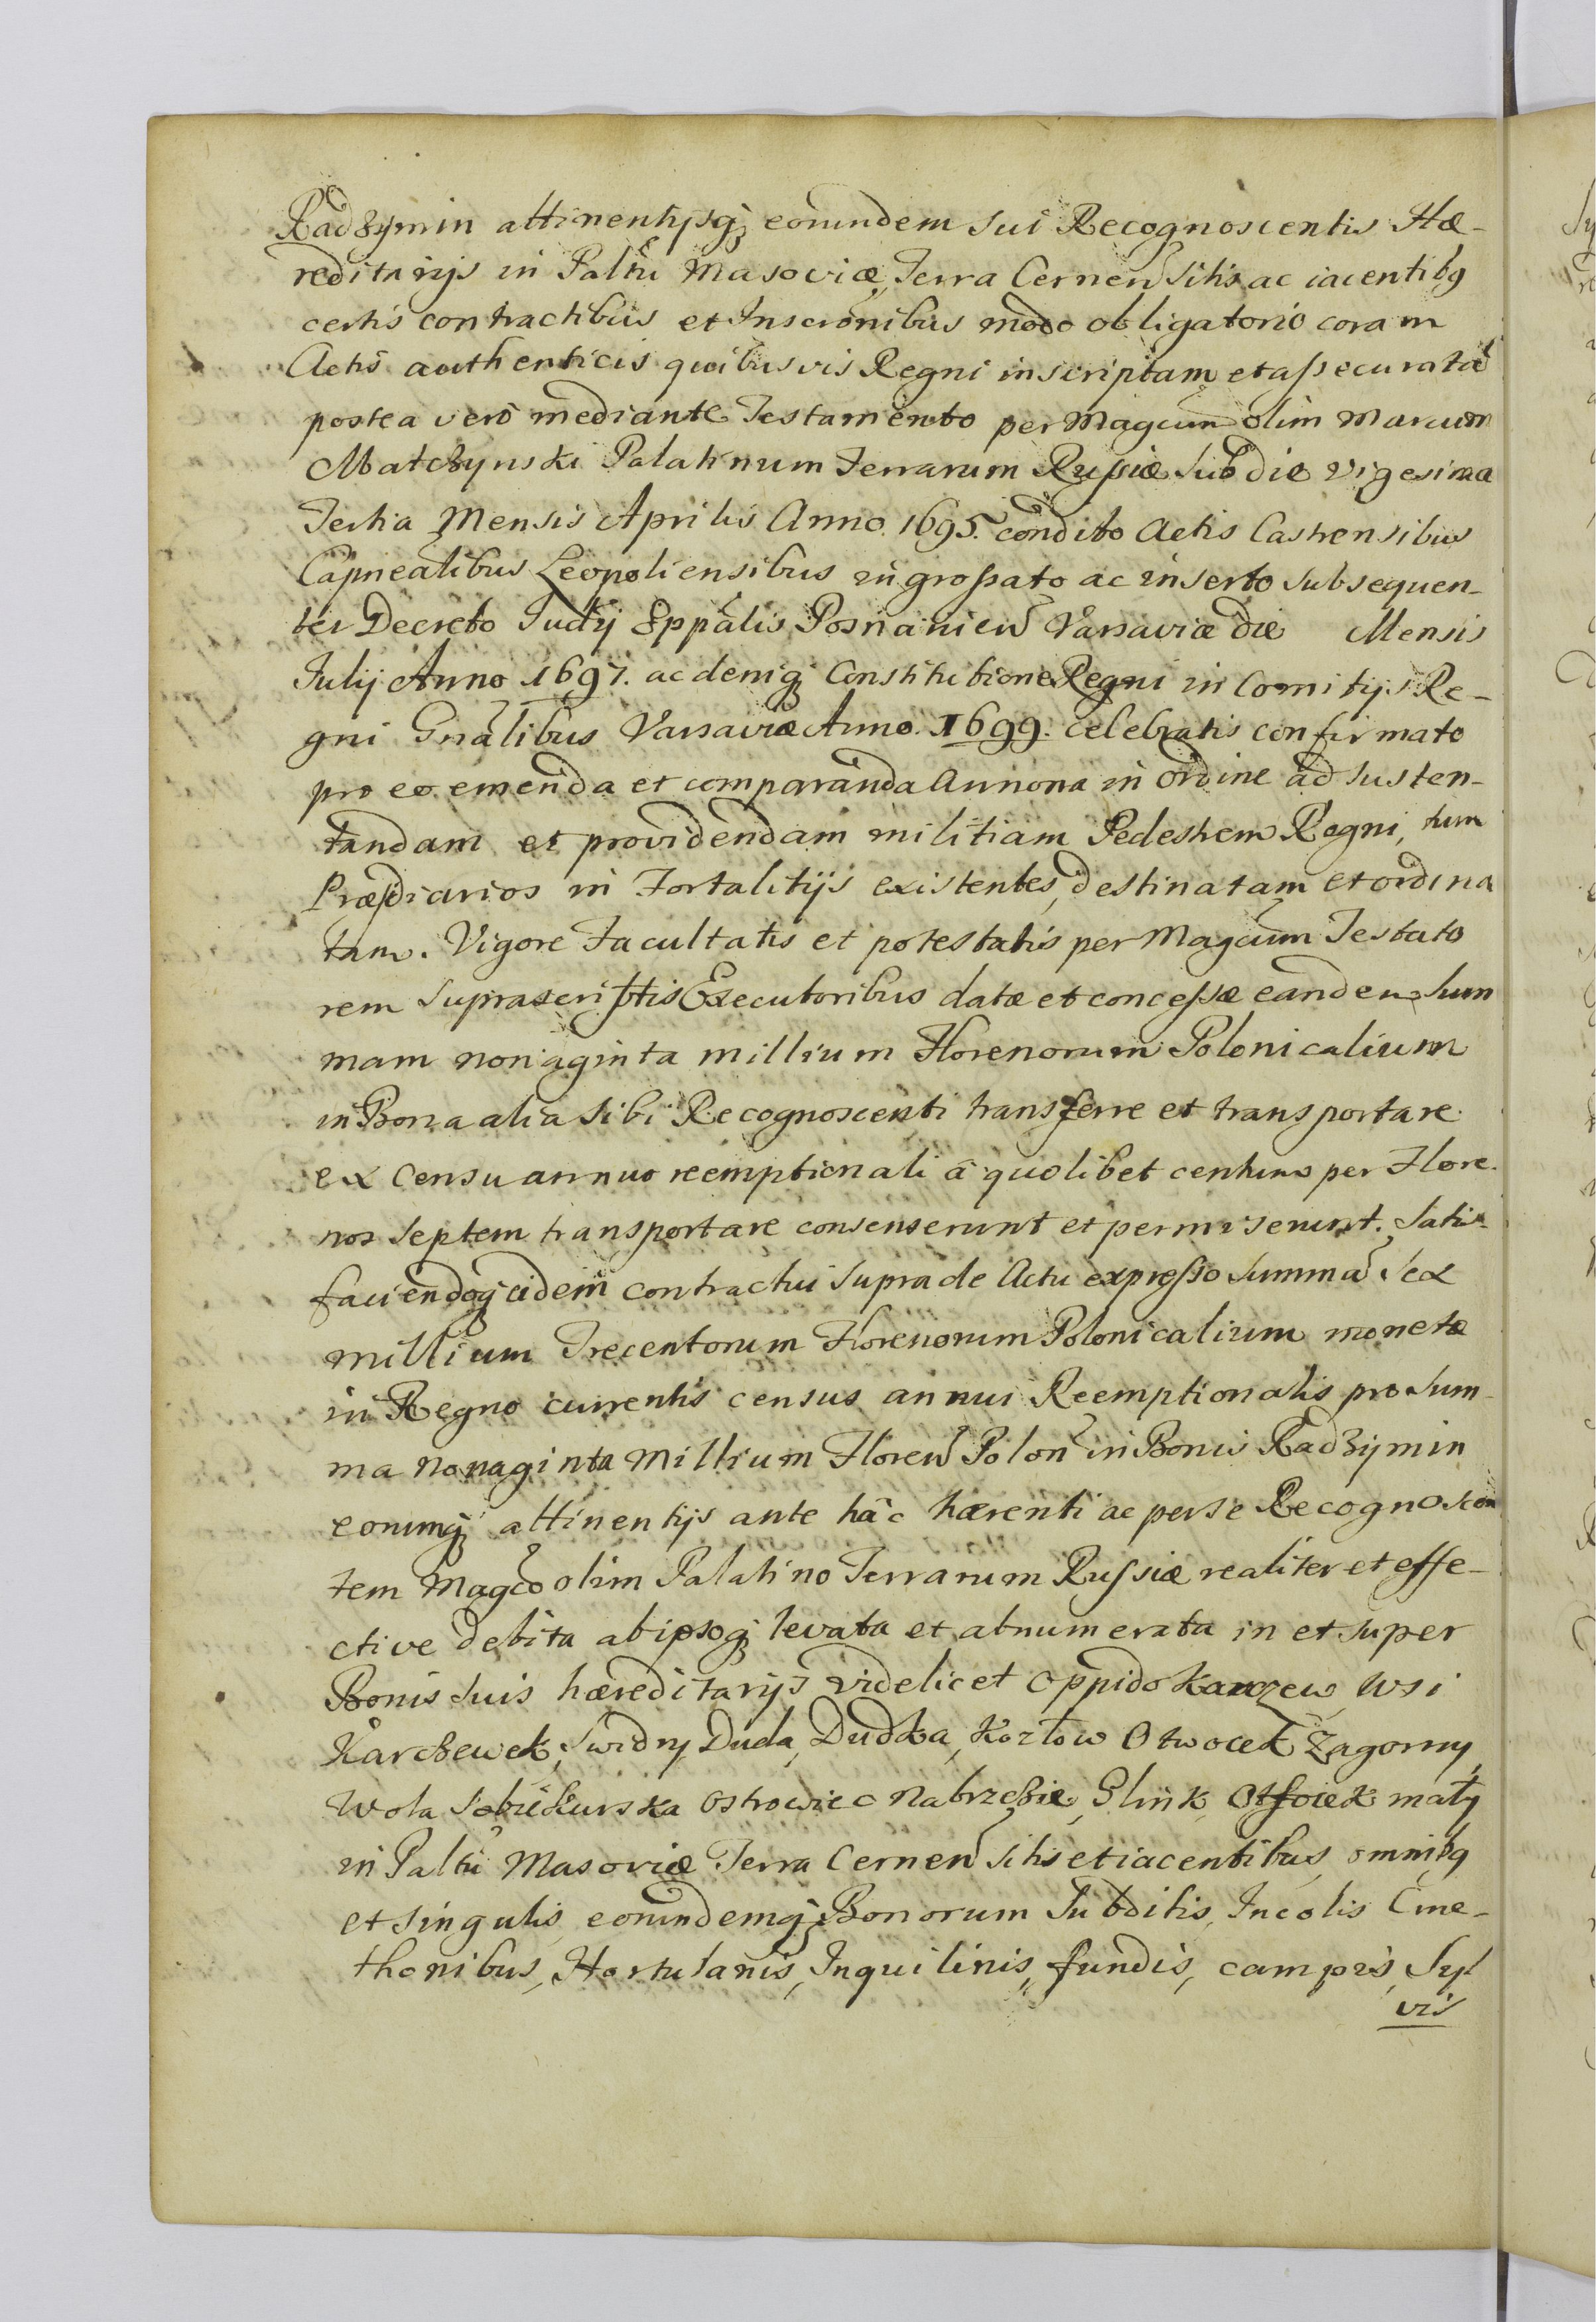 Radzymin attinentijsq; eorundem sui Recognoscentis Hæ-
reditarijs in Paltu Masoviæ, Terra Cernen̄ sitis ac iacentibq
certis contractibus et Inscronibus modo obligatorio coram
Actis authenticis quibusvis Regni inscriptam et assecuratā
postea verò mediante Testamento per Magcum olim Marcum
Matczynski Palatinum Terrarum Russiæ sub die vigesima
Tertia Mensis Aprilis Anno 1695. condito Actis Castrensibus
Capnealibus Leopoliensibus ingrossato ac inserto subsequen-
ter Decreto Judij Eppalis Posnanien̄ Varsaviæ die Mensis
Julij Anno 1697. ac deniq; Constitutione Regni in Comitijs Re-
gni Gnalibus Varsaviæ Anno 1699. celebratis confirmato
pro eo emenda et comparanda Annona in ordine ad susten-
tandam et providendam militiam Pedestrem Regni, tum
Præsidiarios in Fortalitijs existentes, destinatam et ordina
tam. Vigore Facultatis et potestatis per Magcum Testato
rem suprascriptis Executoribus datæ et concessæ eandem sum
mam nonaginta millium Florenorum Polonicalium
in Bona alia sibi Recognoscenti transferre et transportare
ex censu annuo reemptionali à quolibet centum per Flore-
nos septem transportare consenserunt et permiserunt. Satis-
faciendoq; eidem contractui supra de Actu expresso summā sex
millium Trecentorum Florenorum Polonicalium monetæ
in Regno currentis census annui Reemptionalis pro sum-
ma nonaginta Millium Floren̄ Polon̄ in Bonis Radzymin
eorumq; attinentijs ante hâc hærenti ac per se Recognoscen
tem Magco olim Palatino Terrarum Russiæ realiter et effe-
ctive debita ab ipsoq; levata et adnumerata in et super
Bonis suis hæreditarijs videlicet oppido Karczew, wsi
Karczewek, Swidry Duda, Dudka, Kozłow Otwocek Zagorny,
Wola Sobiekurska Ostrowiec Nabrzezie, Glink, Otfocek mały
in Paltu Masoviæ Terra Cernen̄ sitis et iacentibus, omnibq
et singulis, eorundemq; Bonorum Subditis, Incolis Cme-
thonibus, Hortulanis, Inquilinis, fundis, campis, Syl
vis